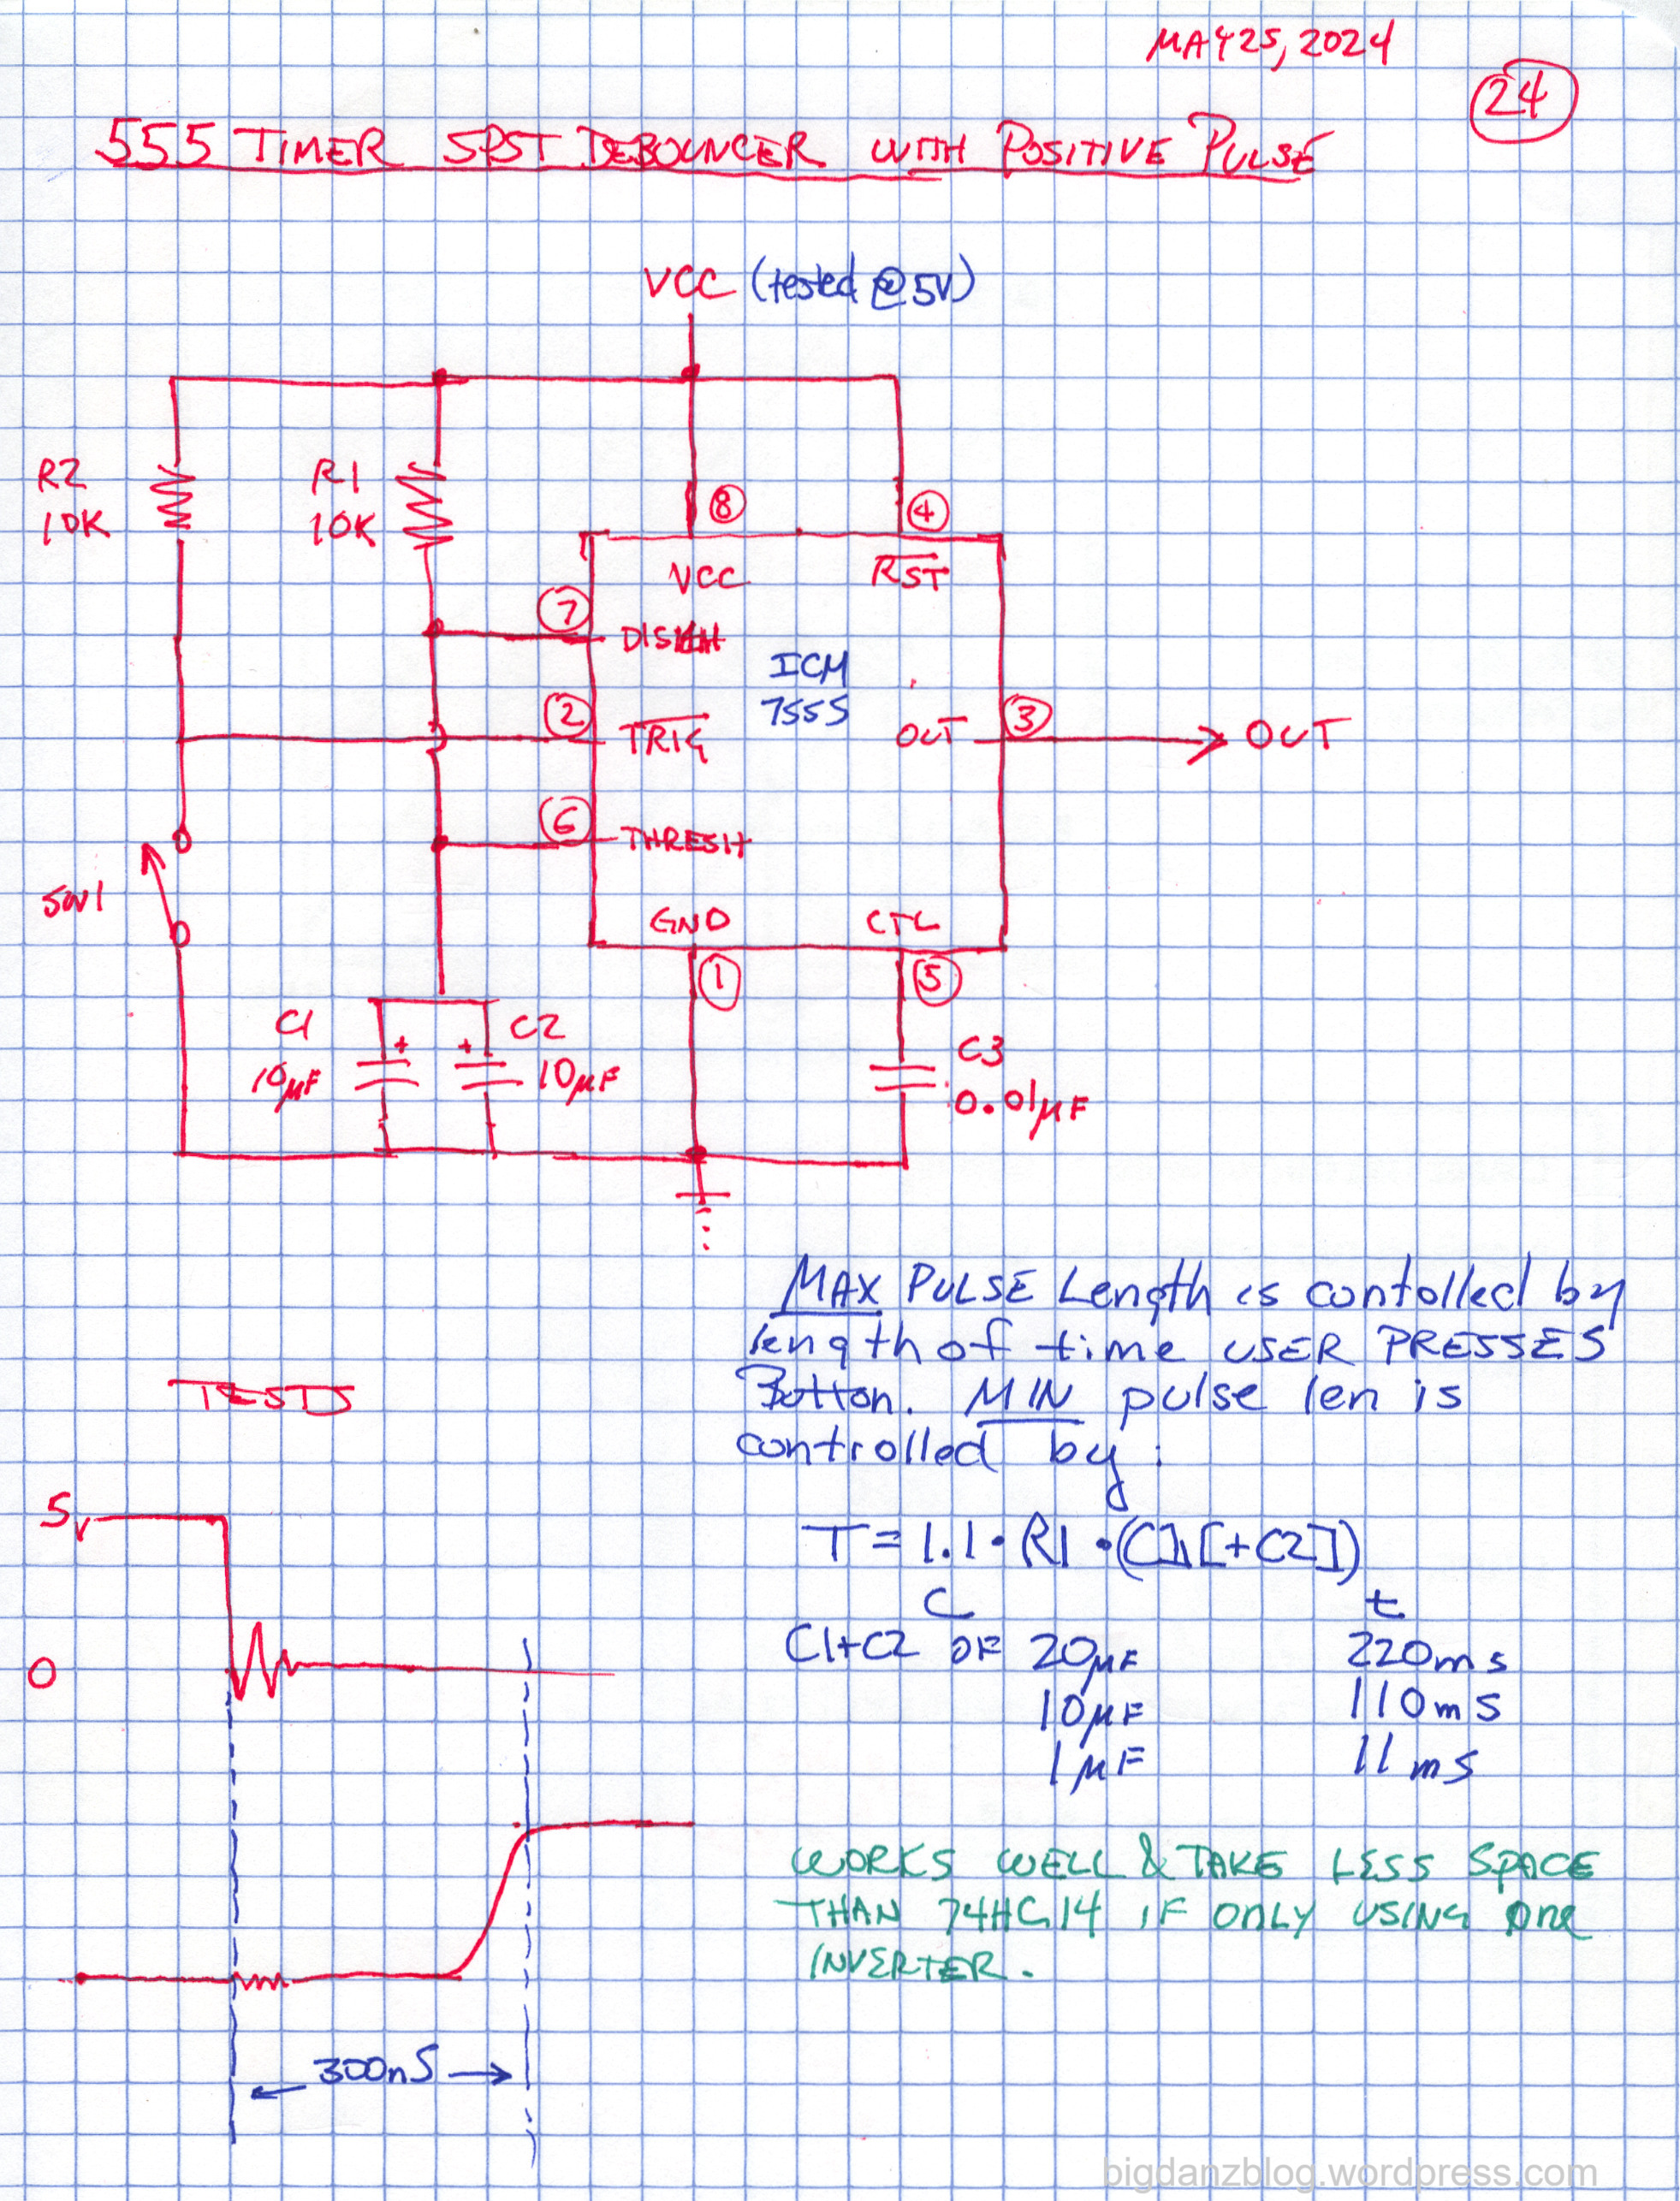 MAY 25, 2024
24
555 TIMER SPST DEBOUNCER WITH POSITIVE PULSE
VCC (tested @ 5V)
R2
10K
R1
10K
8
4
VCC
RST
7
DISCH
ICM
7555
2
TRIG
OUT
3
OUT
6
THRESH
SW1
GND
CTL
1
5
C1
10µF
+
+
C2
10µF
C3
0.01µF
MAX PULSE Length is contolled by
length of time USER PRESSES
Button. MIN pulse len is
controlled by:
T = 1.1 • R1 • (C1[+C2])
C t
C1+C2 OF 20µF 220ms
10µF 110ms
1µF 11ms
TESTS
5V
0
WORKS WELL & TAKE LESS SPACE
THAN 74HC14 IF ONLY USING ONE
INVERTER.
300nS
bigdanzblog.wordpress.com